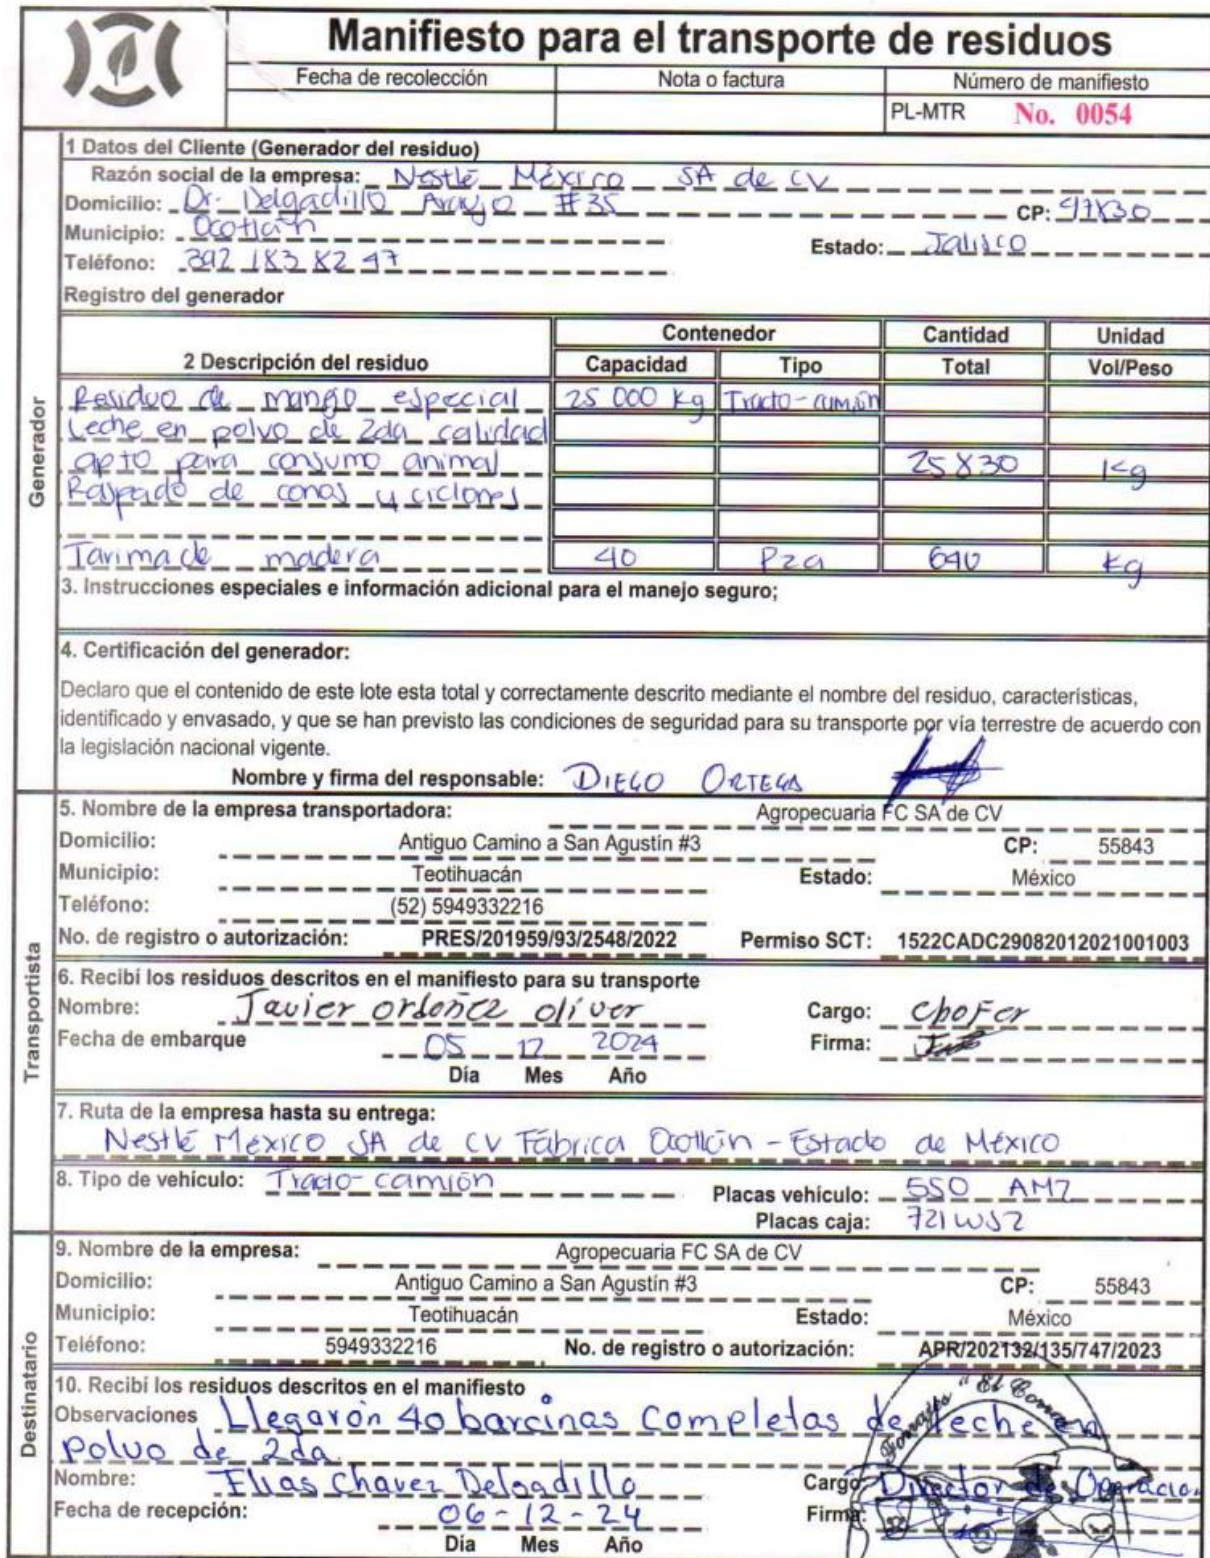 Manifiesto para el transporte de residuos
Fecha de recolección Nota o factura Número de manifiesto
PL-MTR No. 0054
Generador
1 Datos del Cliente (Generador del residuo)
Razón social de la empresa: Nestlé México SA de CV
Domicilio: Dr. Delgadillo Araujo #35 CP: 47830
Municipio: Ocotlán Estado: Jalisco
Teléfono: 392 183 82 47
Registro del generador
2 Descripción del residuo Contenedor Cantidad Unidad
Capacidad Tipo Total Vol/Peso
Residuo de manejo especial 25 000 kg Tracto-camión
Leche en polvo de 2da calidad
apto para consumo animal 25830 Kg
Raspado de conos y ciclones
Tarima de madera 40 Pza 640 Kg
3. Instrucciones especiales e información adicional para el manejo seguro;
4. Certificación del generador:
Declaro que el contenido de este lote esta total y correctamente descrito mediante el nombre del residuo, características,
identificado y envasado, y que se han previsto las condiciones de seguridad para su transporte por vía terrestre de acuerdo con
la legislación nacional vigente.
Nombre y firma del responsable: DIEGO ORTEGA
Transportista
5. Nombre de la empresa transportadora: Agropecuaria FC SA de CV
Domicilio: Antiguo Camino a San Agustín #3 CP: 55843
Municipio: Teotihuacán Estado: México
Teléfono: (52) 5949332216
No. de registro o autorización: PRES/201959/93/2548/2022 Permiso SCT: 1522CADC29082012021001003
6. Recibí los residuos descritos en el manifiesto para su transporte
Nombre: Javier ordoñez oliver Cargo: Chofer
Fecha de embarque 05 12 2024 Firma:
Día Mes Año
7. Ruta de la empresa hasta su entrega:
Nestlé México SA de CV Fábrica Ocotlán - Estado de México
8. Tipo de vehículo: Tracto-camión Placas vehículo: 550 AM7
Placas caja: 721WS2
Destinatario
9. Nombre de la empresa: Agropecuaria FC SA de CV
Domicilio: Antiguo Camino a San Agustín #3 CP: 55843
Municipio: Teotihuacán Estado: México
Teléfono: 5949332216 No. de registro o autorización: APR/202132/135/747/2023
10. Recibí los residuos descritos en el manifiesto
Forrajes "El
Observaciones Llegarón 40 barcinas Completas de leche en
Polvo de 2da
Nombre: Elias Chavez Delgadillo Cargo: Director de Operacion
Fecha de recepción: 06-12-24 Firma:
Día Mes Año